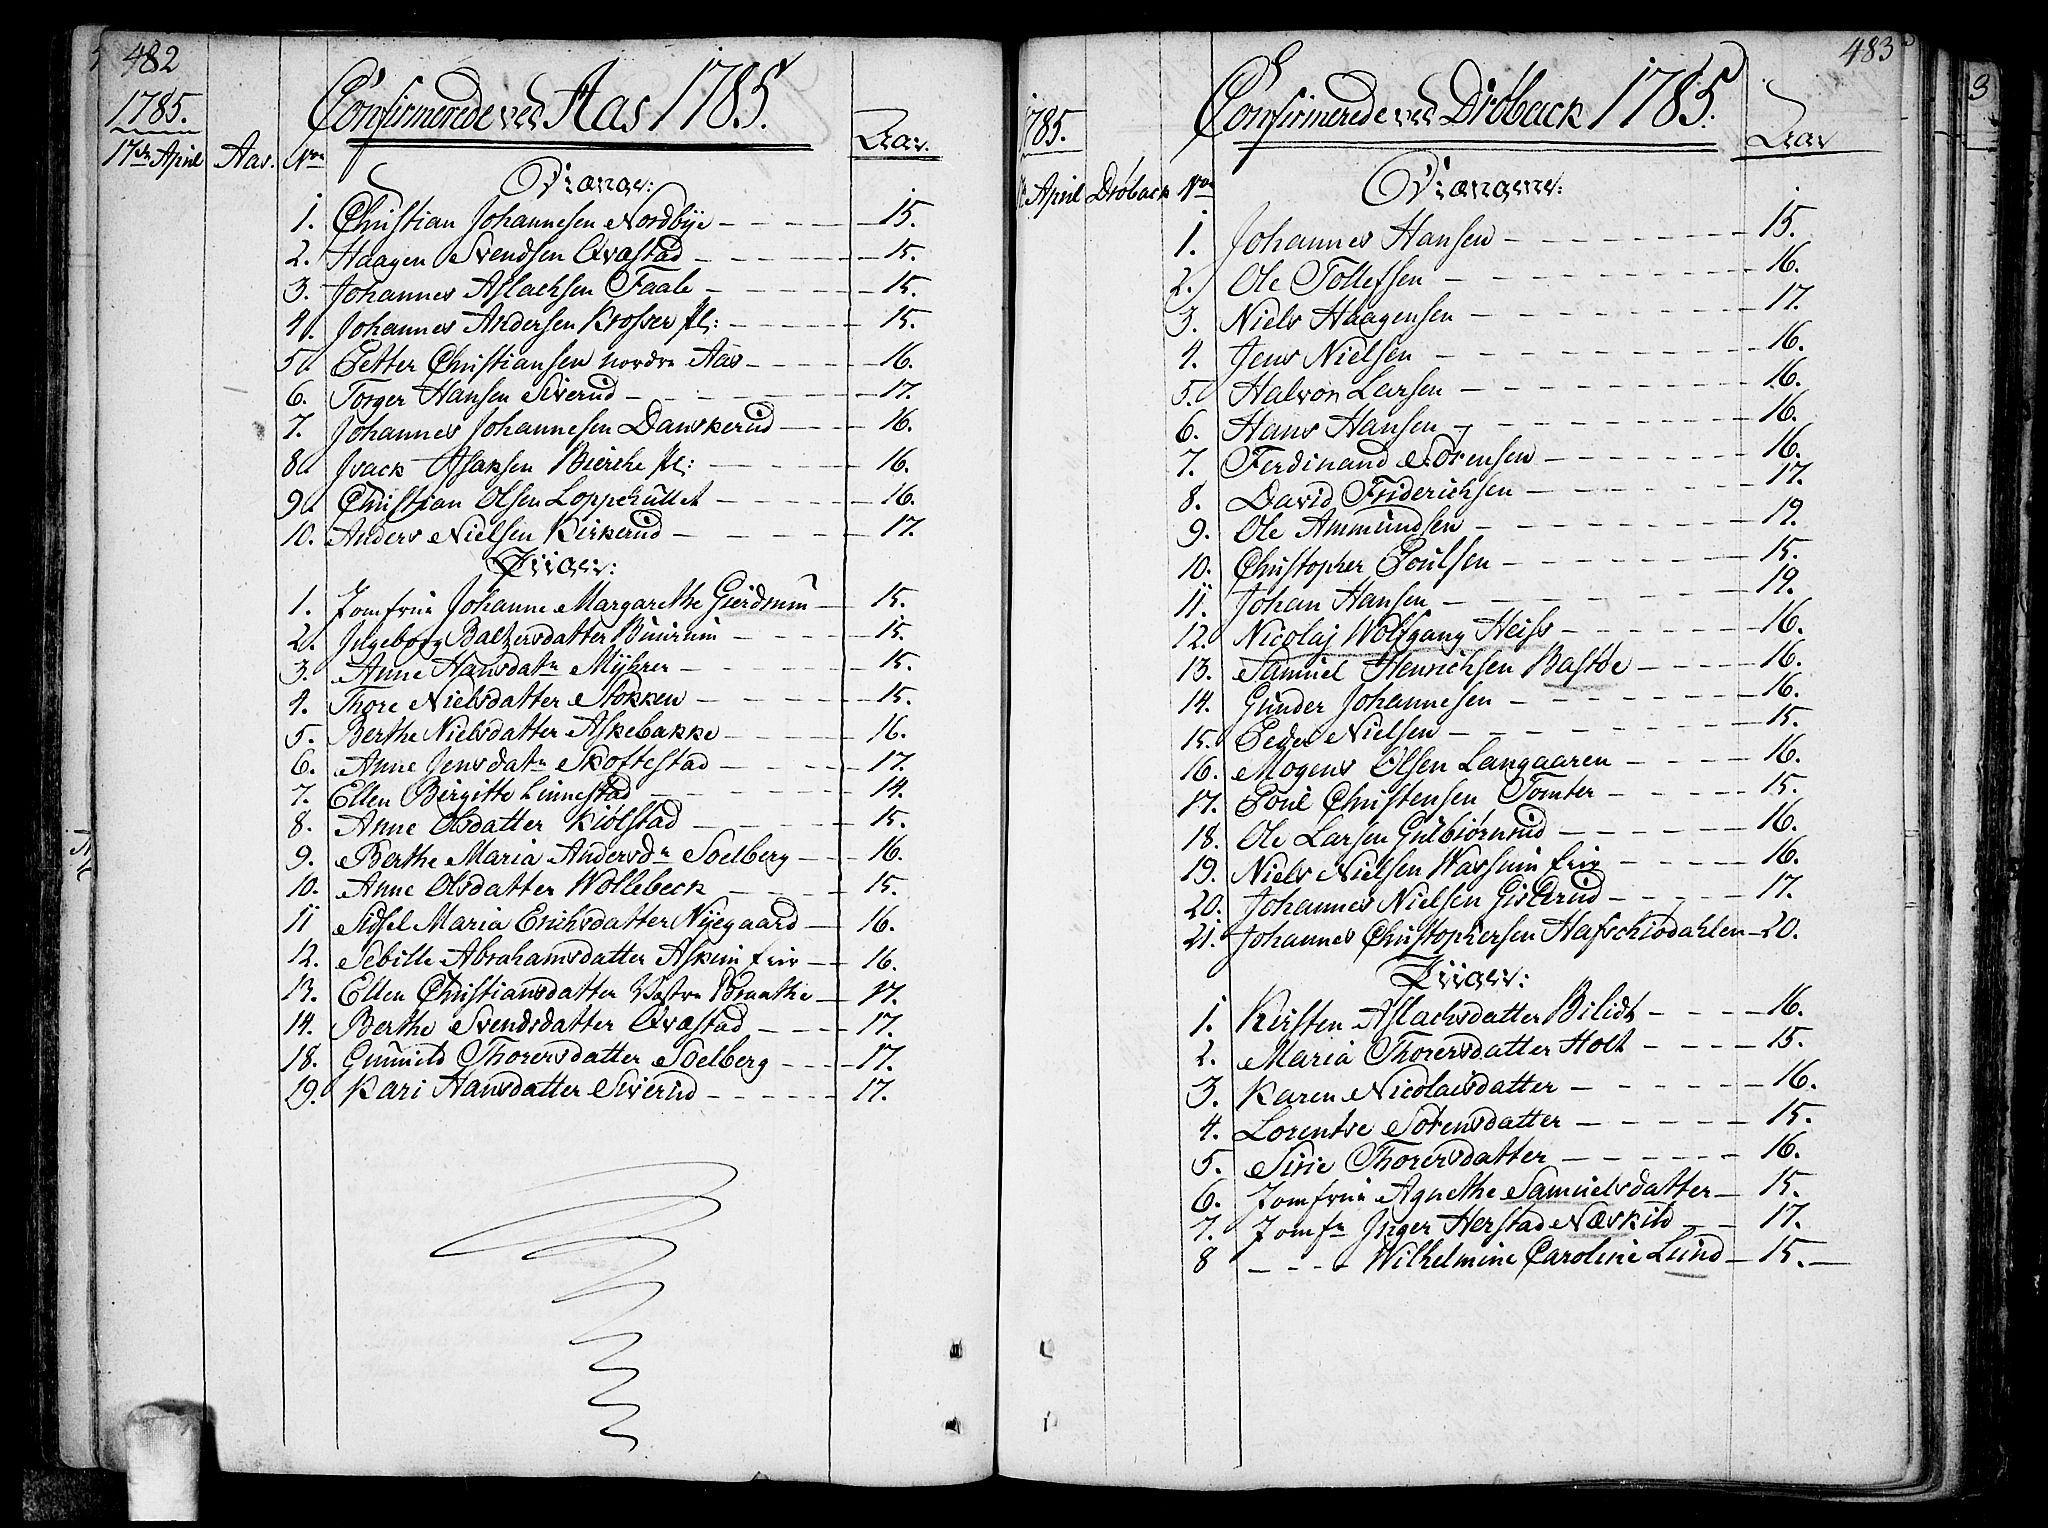 482
1785.
Confirmerede ved Aas 1785.
Aar.
17de April Aas. No
Drænge:
1. Christian Johannesen Nordbÿe - 15.
2. Haagen Svendsen Qvæstad - 15.
3. Johannes Aslachsen Faale - 15.
4. Johannes Andersen Krosser pl: - 15.
5. Petter Christiansen nordre Aas - 16.
6. Torger Hansen Siverud - 17.
7. Johannes Johannesen Danskerud - 16.
8. Isack Isaksen Bierche pl: - 16.
9. Christian Olsen Loppehullet - 16.
10. Anders Nielsen Kirkerud - 17.
Piiger:
1. Jomfrue Johanne Margarethe Gierdrum - 15.
2. Ingeborg Baltzersdatter - 15.
3. Anne Hansdatr Mÿhrer - 15.
4. Thore Nielsdatter Stokken - 15.
5. Berthe Nielsdatter Askebakke - 16.
6. Anne Jensdatr Skoftestad - 17.
7. Ellen Birgitte Linnestad - 14.
8. Anne Olsdatter Kiølstad - 15.
9. Berthe Maria Andersdr Soelberg - 16.
10. Anne Olsdatter Wollebeck - 15.
11 Sidsel Maria Erichsdatter Nÿegaard - 16.
12. Sebille Abrahamsdatter Askim eier - 16.
13. Ellen Christiansdatter Vestre Braathe - 17.
14. Berthe Svendsdatter Qvæstad - 17.
18. Gunnild Thorersdatter Soelberg - 17.
19. Kari Hansdatter Siverud - 17.
483
1785.
Confirmerede ved Drøback 1785.
Aar
April Drøback No
Drængene:
1. Johannes Hansen - 15.
2. Ole Tollefsen - 16.
3. Niels Haagensen - 17.
4. Jens Nielsen - 16.
5. Halvor Larsen - 16.
6. Hans Hansen - 16.
7. Ferdinand Sørensen - 16.
8. David Friderichsen - 17.
9. Ole Ammundsen - 19.
10. Christopher Poulsen - 15.
11. Johan Hansen - 19.
12. Nicolaj Wolfgang Heiss - 16.
13. Samuel Henrichsen Bastøe - 16.
14. Gunder Johannesen - 16.
15. Peder Nielsen - 15.
16. Mogens Olsen Langaaren - 16.
17. Poul Christensen Tomter - 15.
18. Ole Larsen Gulbiørnrud - 16.
19. Niels Nielsen Wassum eier - 16.
20. Johannes Nielsen Gislerud - 17.
21. Johannes Christophersen Hafschiødahlen - 20.
Piiger:
1. Kirsten Aslachsdatter Bilidt - 16.
2. Maria Thorersdatter Holt - 15.
3. Karen Nicolaisdatter - 16.
4. Lorentse Sørensdatter - 15.
5. Sirie Thorersdatter - 16.
6. Jomfrue Agnethe Samuelsdatter - 15.
7. Jomfr Inger Herstad Næskild - 17.
8 - - - Wilhelmine Caroline Lund - 15.